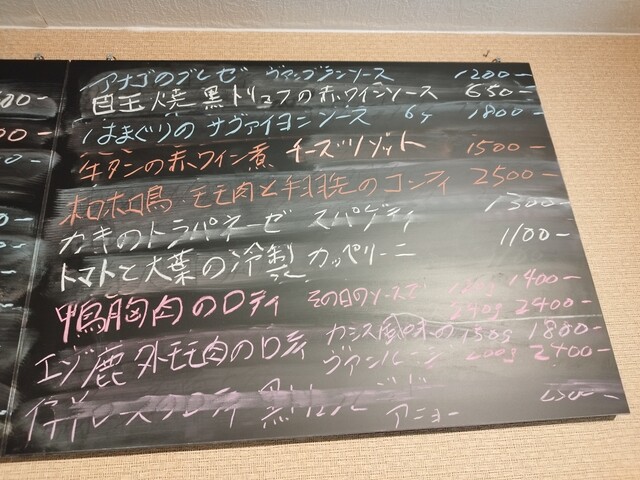 アナゴのブレゼ ヴァンブランソース 1200-
目玉焼 黒トリュフの赤ワインソース 650-
はまぐりのサヴァイヨンソース 6ヶ 1800-
牛タンの赤ワイン煮 チーズリゾット 1500-
ホロホロ鳥 モモ肉と手羽先のコンフィ 2500-
カキのトラパネーゼ スパゲティ 1300-
トマトと大葉の冷製 カッペリーニ 1100-
鴨胸肉のロティ その日のソースで 1400-
240g 2400-
エゾ鹿 外モモ肉のロティ カシス風味の 150g 1800-
ヴァンルージュ 200g 2400-
仔羊 ロティ 黒 アニョー